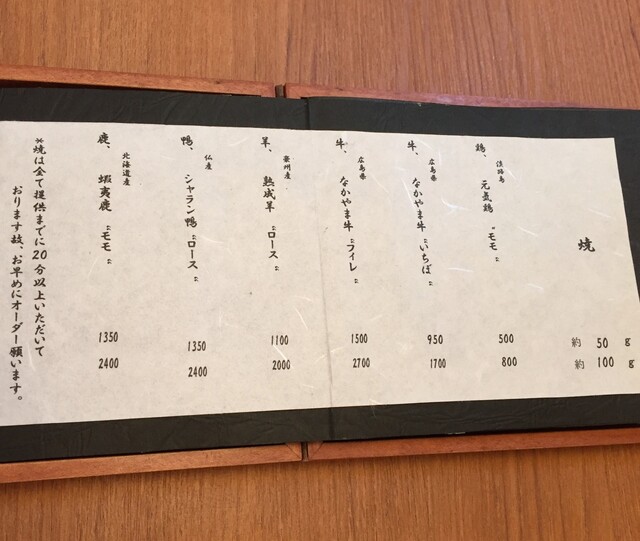 焼
約 50 g
約 100 g
淡路島
鶏、元気鶏 "モモ"
500
800
広島県
牛、なかやま牛 "いちぼ"
950
1700
広島県
牛、なかやま牛 "フィレ"
1500
2700
豪州産
羊、熟成羊 "ロース"
1100
2000
仏産
鴨、シャラン鴨 "ロース"
1350
2400
北海道産
鹿、蝦夷鹿 "モモ"
1350
2400
※焼は全て提供までに20分以上いただいて
おります故、お早めにオーダー願います。